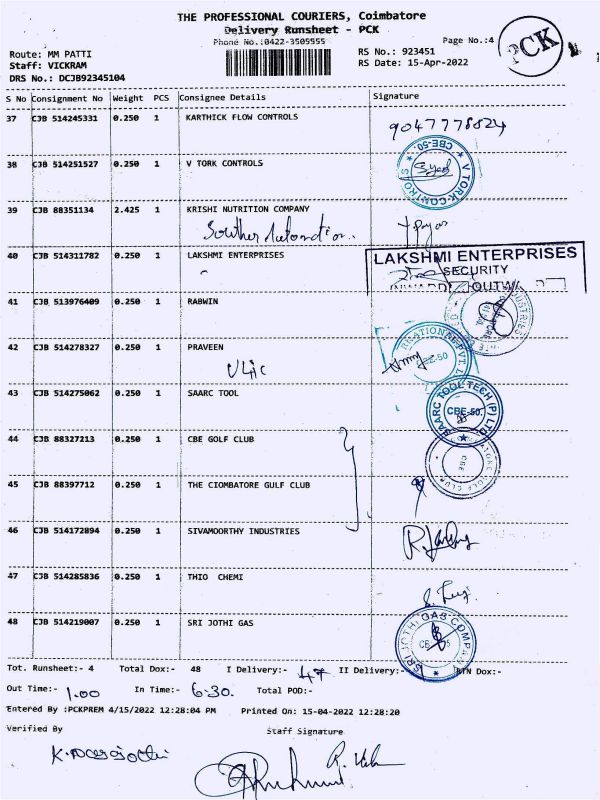 THE PROFESSIONAL COURIERS, Coimbatore
Delivery Runsheet - PCK
Phone No.:0422-3505555
Page No.:4
PCK
Route: MM PATTI
Staff: VICKRAM
DRS No.: DCJB92345104
RS No.: 923451
RS Date: 15-Apr-2022
S No Consignment No Weight PCS Consignee Details Signature
37 CJB 514245331 0.250 1 KARTHICK FLOW CONTROLS 9047778824
38 CJB 514251527 0.250 1 V TORK CONTROLS
CBE-50. V TORK CONTROLS Syed
39 CJB 88351134 2.425 1 KRISHI NUTRITION COMPANY
40 CJB 514311782 0.250 1 LAKSHMI ENTERPRISES
LAKSHMI ENTERPRISES
SECURITY
41 CJB 513976409 0.250 1 RABWIN
42 CJB 514278327 0.250 1 PRAVEEN
43 CJB 514275062 0.250 1 SAARC TOOL
SAARC TOOL TECH (P) LTD CBE-50.
44 CJB 88327213 0.250 1 CBE GOLF CLUB
45 CJB 88397712 0.250 1 THE CIOMBATORE GULF CLUB
46 CJB 514172894 0.250 1 SIVAMOORTHY INDUSTRIES
47 CJB 514285836 0.250 1 THIO CHEMI
48 CJB 514219007 0.250 1 SRI JOTHI GAS
SRI JOTHI GAS COMPANY
Tot. Runsheet:- 4 Total Dox:- 48 I Delivery:- 47 II Delivery:- RTN Dox:-
Out Time:- 1.00 In Time:- 6.30. Total POD:-
Entered By :PCKPREM 4/15/2022 12:28:04 PM Printed On: 15-04-2022 12:28:20
Verified By Staff Signature